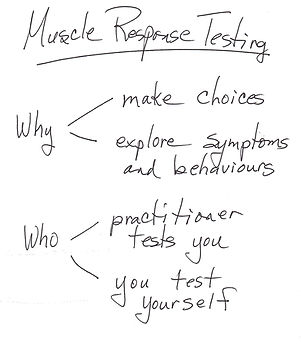 Muscle Response Testing
Why
make choices
explore symptoms
and behaviours
Who
practitioner
tests you
you test
yourself